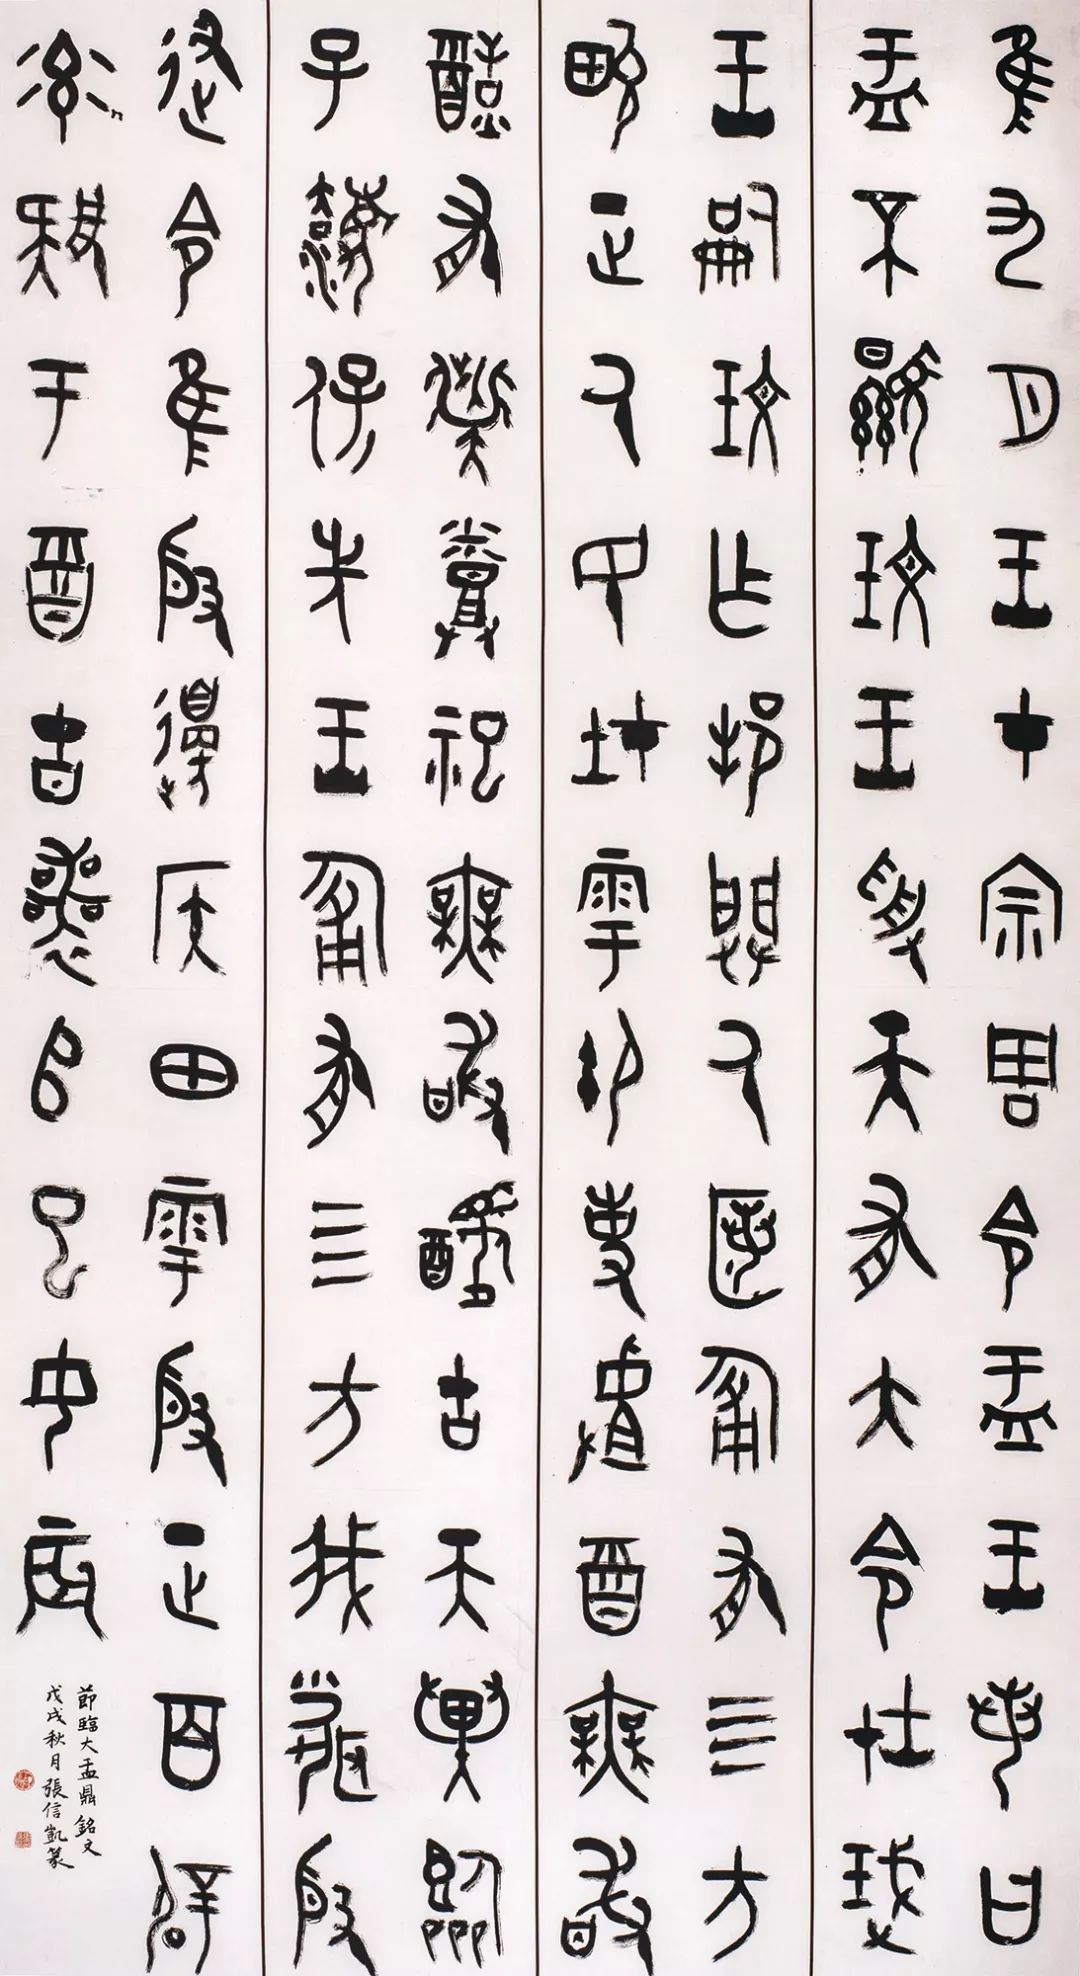 隹九月王才宗周令盂王若曰
盂不顯玟王受天有大令在珷
王嗣玟乍邦闢厥匿匍有四方
畯正厥民在雩御事𠭯酉無敢
酖有祡烝祀無敢醻古天異臨
子灋保先王匍有四方我聞殷
述令隹殷邊侯田雩殷正百辟
率肄于酉古喪𠂤巳女辰
節臨大盂鼎銘文
戊戌秋月張信凱篆